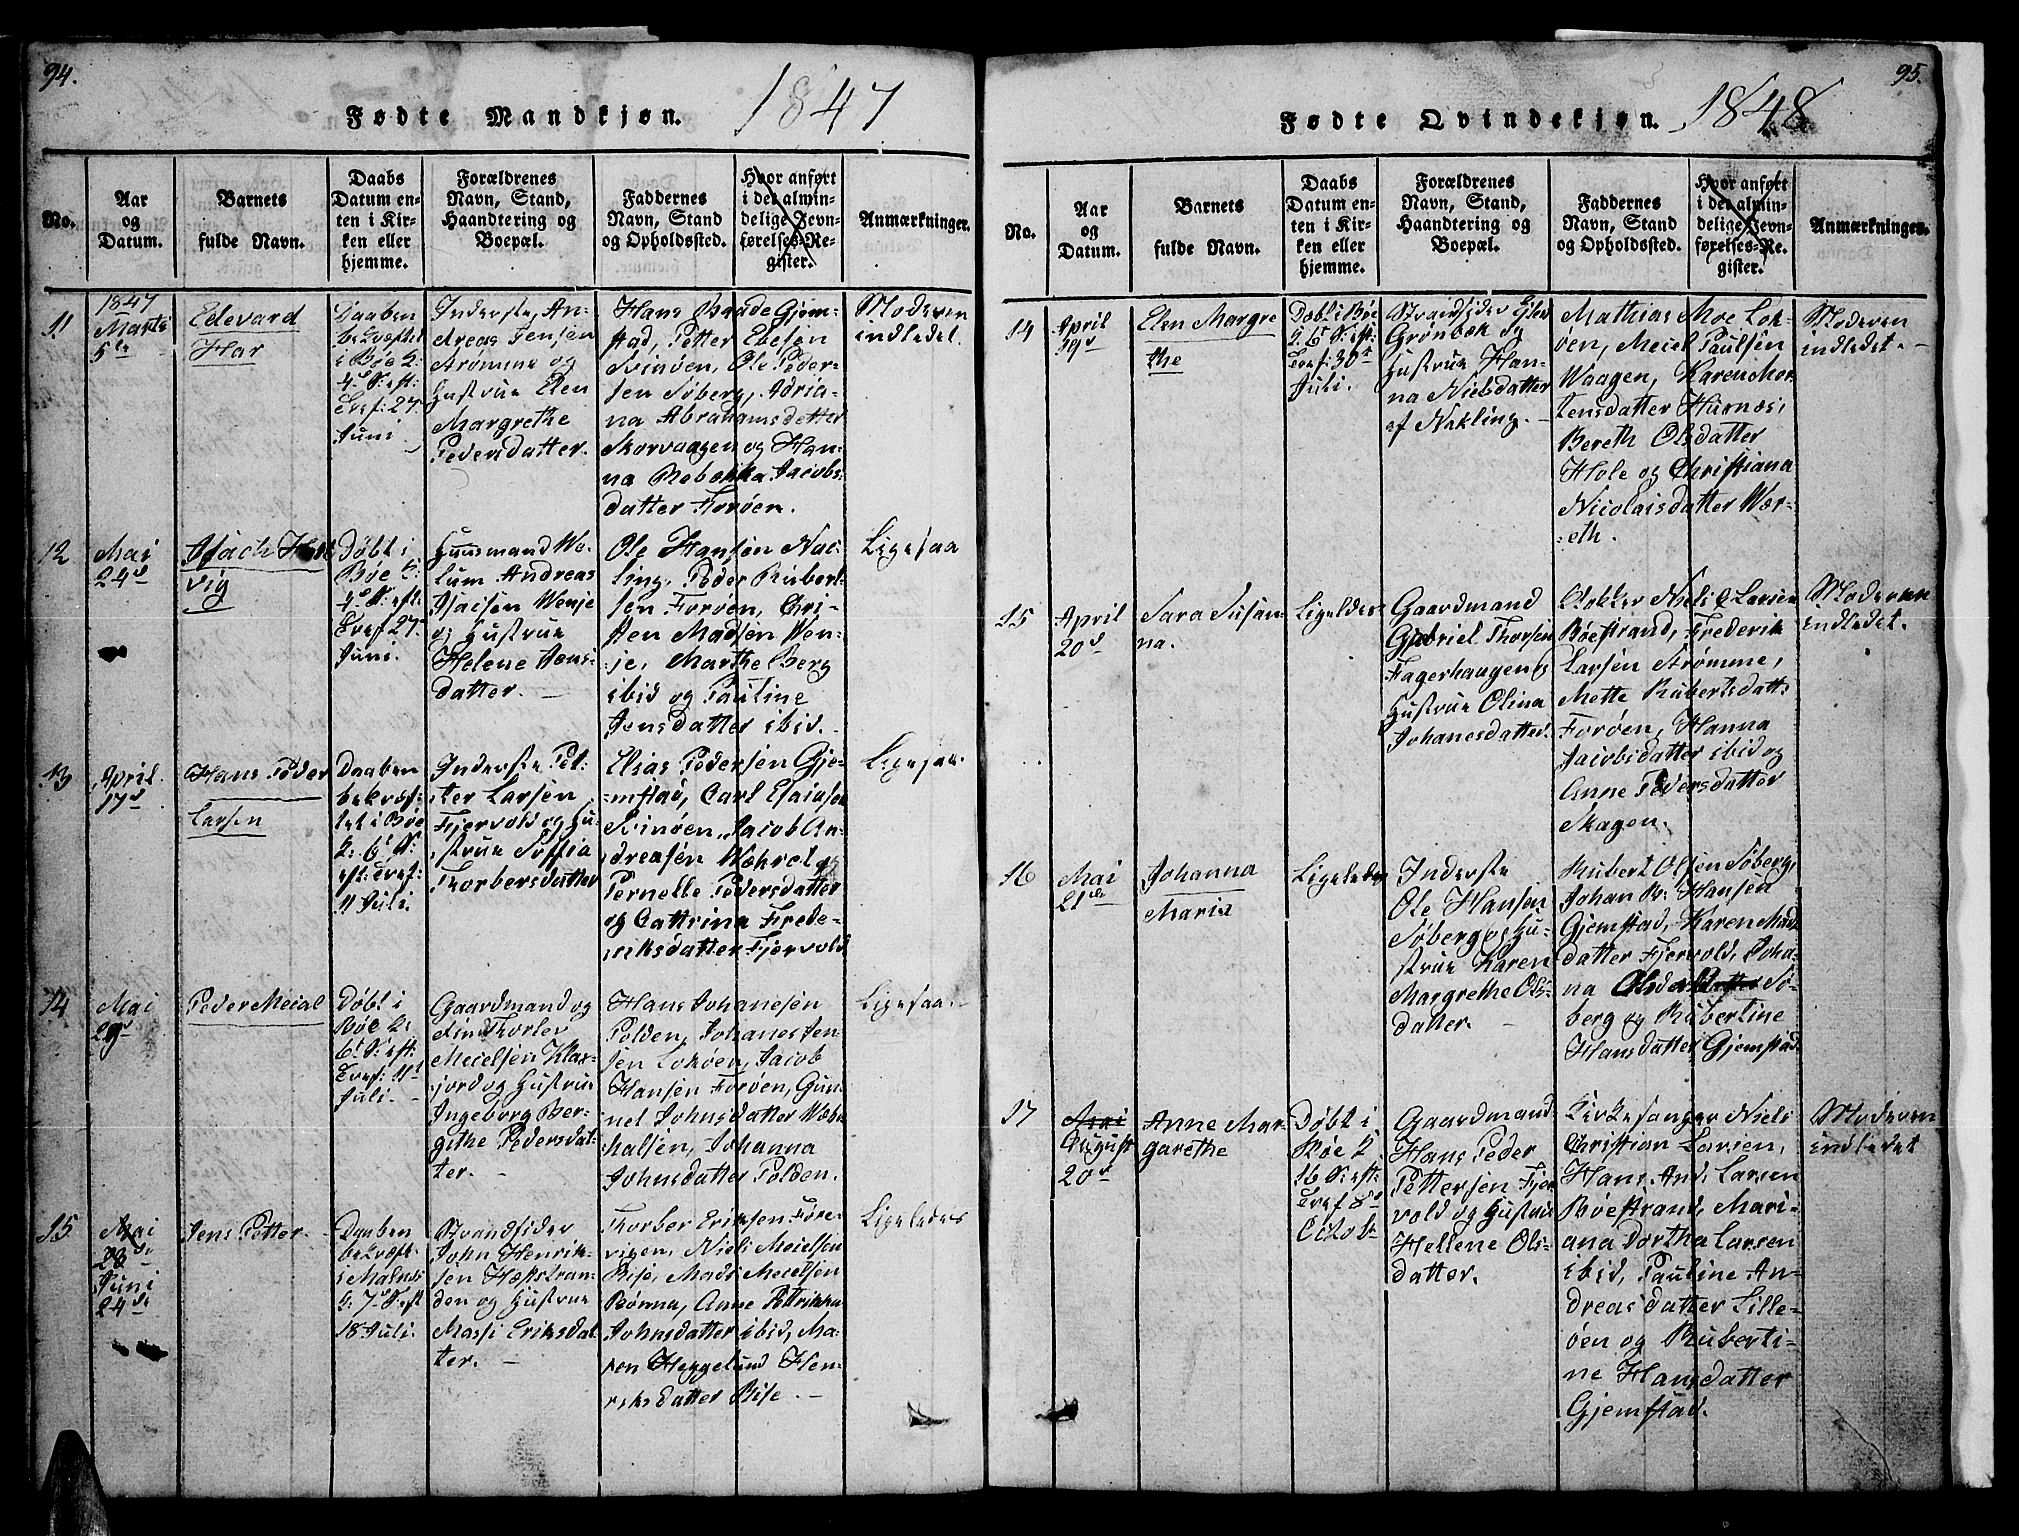 94.
Fødte Mandkjøn. 1847
No.
Aar
og
Datum.
Barnets
fulde Navn.
Daabs
Datum en-
ten i Kir-
ken eller
hjemme.
Forældrenes
Navn, Stand,
Haandtering og
Boepæl.
Faddernes
Navn, Stand
og Opholdssted.
Hvor anført
i det almin-
delige Jevn-
førelses-Re-
gister.
Anmærkninger.
11
1847
Marts
5te
Edevard
Har
Daaben
bekræftet
i Bøe S:
4de S: eft:
Tref: 27
Juni
Inderste, An-
dreas Jensen
Strømme og
Hustrue Elen
Margrethe
Pedersdatter.
Hans Baade Gjem-
stad, Petter Ebesen
Svinøen, Ole Peder-
sen Søberg, Adria-
na Abrahamsdatter
Skorvaagen og Han-
na Rebekka Jacobs-
datter Forøen.
Moderen
indledet.
12
Mai
24d
Isach Hart
vig
Døbt i
Bøe S:
4de S: eft:
Tref 27
Juni.
Huusmand We-
lum Andreas
Isaisen Wenje
og Hustrue
Helene Jens-
datter. —
Ole Hansen Nac-
ling, Peder Rubert-
sen Forøen, Chri-
sten Madsen Wen-
je, Marthe Berg
ibid og Pauline
Jensdatter ibid. —
Ligesaa
13
April
17d
Hans Peder
Larsen
Daaben
bekræf-
tet i Bøe
S: 6te S:
eft: Tref:
11 Juli.
Inderste Pet-
ter Larsen
Fjervold og Hu-
strue Soffia
Thorbersdatter
Elias Pedersen Gje-
mstad, Carl Esaiasen
Svinøen, Jacob An-
dreasen Wæhret og
Pernelle Pedersdatter
og Cathrina Frede-
riksdatter Fjervold
Ligesaa.
14
Mai
29d
Peder Meial
Døbt i
Bøe S:
6te S: eft:
Tref: 11te
Juli. —
Gaardmand og
Thorlev
Meielsen Klax-
fjord og Hustrue
Ingeborg Ber-
githe Pedersdat-
ter. —
Hans Johanesen
Polden, Johanes Jen-
sen Lokøen, Jacob
Hansen Forøen, Gun-
nel Johnsdatter Wæh-
halsen, Johanna
Johnsdatter Polden.
Ligesaa. —
15
Mai
28de
Juni
24de
Jens Petter. —
Daaben
bekræft
i Malnes
S: 7de S: eft
18 Juli.
Strandsider
John Henrik-
sen Høkstran-
den og Hustrue
Massi Eriksdat
ter. —
Thorber Eriksen Føre
vigen, Niels Meielsen
Bise, Mads Meielsen
Rønna, Anne Petrikka
Johnsdatter ibid, Ma-
ren Heggelund Hen-
riksdatter Bise. —
Ligeledes
95.
Fødte Qvindekjøn. 1848
No.
Aar
og
Datum.
Barnets
fulde Navn.
Daabs
Datum en-
ten i Kir-
ken eller
hjemme.
Forældrenes
Navn, Stand,
Haandtering og
Boepæl.
Faddernes
Navn, Stand
og Opholdssted.
Hvor anført
i det almin-
delige Jevn-
førelses-Re-
gister.
Anmærkninger.
14
April
19d
Elen Margre
the
Døbt i Bøe
S. 6te S: eft:
Tref: 30te
Juli.
Strandsider
Grønbæk og
Hustrue Han-
na Nielsdatter
af Nykling. —
Mathias Moe Lok-
øen, Meiel Paulsen
Waagen, Karen Mor-
tensdatter Hurnæs,
Bereth Olsdatter
Hole og Christiana
Nicolaisdatter Wær-
eth.
Moderen
indledet. —
15
April
20d
Sara Susan-
na.
Ligeledes
Gaardmand
Gabriel Thorsen
Fagerhaugen og
Hustrue Olina
Johanesdatter.
Klokker Niels C Larsen
Bøestrand, Frederik
Larsen Strømme,
Mette Rubertsdatt:
Forøen, Hanna
Jacobsdatter ibid og
Anne Pedersdatter
Skagen.
Moderen
indledet.
16
Mai
21de
Johanna
Maria
Ligeledes
Inderste
Ole Hansen
Søberg og Hu-
strue Karen
Margrethe Ols-
datter. —
Rubert Olsen Søberg,
Johan B: Hansen
Gjemstad, Karen Mads
datter Fjervold, Joha-
na Olsdatter Sø-
berg og Rubertine
Hansdatter Gjemstad
17
Mai
August
20d
Anne Mar
garethe
Døbt i
Bøe S
16 S: eft:
Tref 8de
Octob
Gaardmand
Hans Peder
Pettersen Fjer
vold og Hustrue
Hellene Ols-
datter.
Kirkesanger Niels
Christian Larsen,
Hans And: Larsen
Bøestrand, Mari-
ana Dortha Larsen
ibid, Pauline An-
dreasdatter Lille-
øen og Ruberti-
ne Hansdatter
Gjemstad.
Moderen
indledet